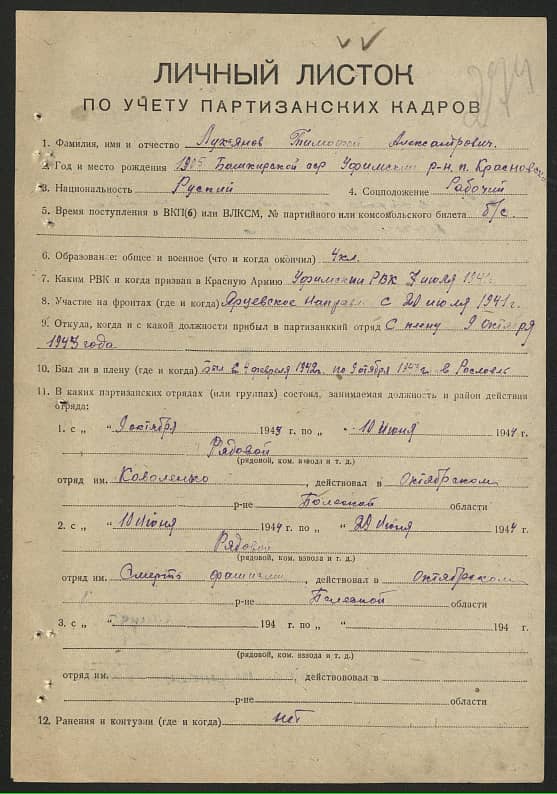 274
ЛИЧНЫЙ ЛИСТОК
ПО УЧЕТУ ПАРТИЗАНСКИХ КАДРОВ
1. Фамилия, имя и отчество Лукьянов Тимофей Александрович.
2. Год и место рождения 1905 Башкирской сср Уфимский р-н. п. Красновско
3. Национальность Руский 4. Соцположение Рабочий
5. Время поступления в ВКП(б) или ВЛКСМ, № партийного или комсомольского билета б/с
6. Образование: общее и военное (что и когда окончил) 4 кл.
7. Каким РВК и когда призван в Красную Армию Уфимский РВК 7 июля 1941
8. Участие на фронтах (где и когда) Ярцевское Направл с 20 июля 1941 г.
9. Откуда, когда и с какой должности прибыл в партизанский отряд С плену 9 Октября
1943 года
10. Был ли в плену (где и когда) 4 февраля 1942 г. по 9 октября 1943 г. в Рославль
11. В каких партизанских отрядах (или группах) состоял, занимаемая должность и район действия
отряда:
1. с „ " 9 октября 1943 г. по „ " 10 Июня 1944 г.
Рядовой
(рядовой, ком. взвода и т. д.)
отряд им. Коваленко , действовал в Октябрском
р-не Полеской области
2. с „ " 10 Июня 1944 г. по „ " 29 Июня 1944 г.
Рядовой
(рядовой, ком. взвода и т. д.)
отряд им. Смерть фашизму , действовал в Октябрском
р-не Полеской области
3. с „ " 194 г. по „ " 194 г.
(рядовой, ком. взвода и т. д.)
отряд им. , действововал в
р-не области
12. Ранения и контузии (где и когда) нет